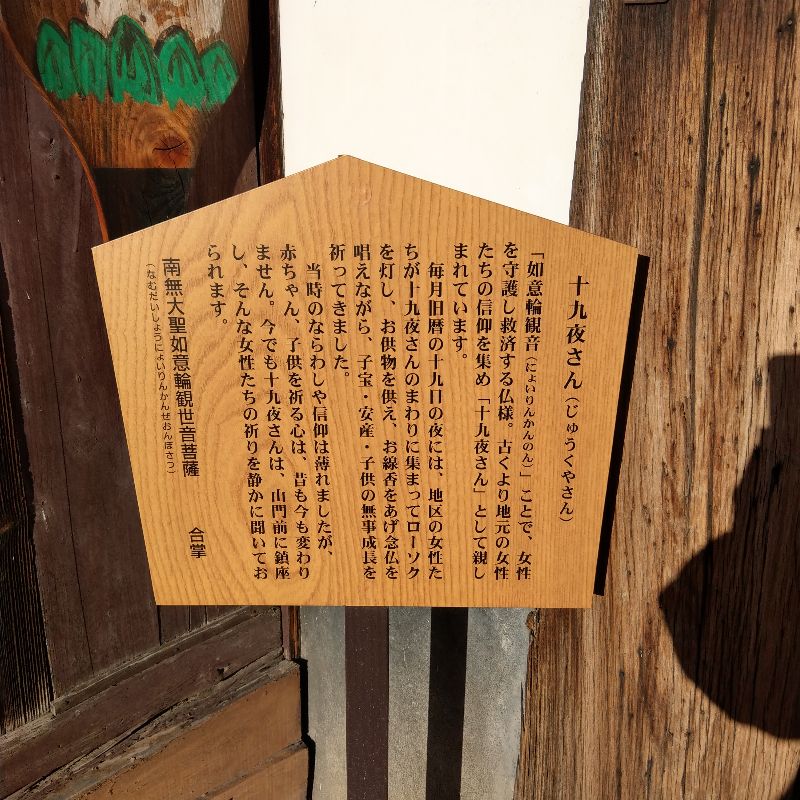 十九夜さん（じゅうくやさん）
「如意輪観音（にょいりんかんのん）」ことで、女性
を守護し救済する仏様。古くより地元の女性
たちの信仰を集め「十九夜さん」として親し
まれています。
毎月旧暦の十九日の夜には、地区の女性た
ちが十九夜さんのまわりに集まってローソク
を灯し、お供物を供え、お線香をあげ念仏を
唱えながら、子宝・安産・子供の無事成長を
祈ってきました。
当時のならわしや信仰は薄れましたが、
赤ちゃん、子供を祈る心は、昔も今も変わり
ません。今でも十九夜さんは、山門前に鎮座
し、そんな女性たちの祈りを静かに聞いてお
られます。
南無大聖如意輪観世音菩薩　合掌
（なむだいしょうにょいりんかんぜおんぼさつ）